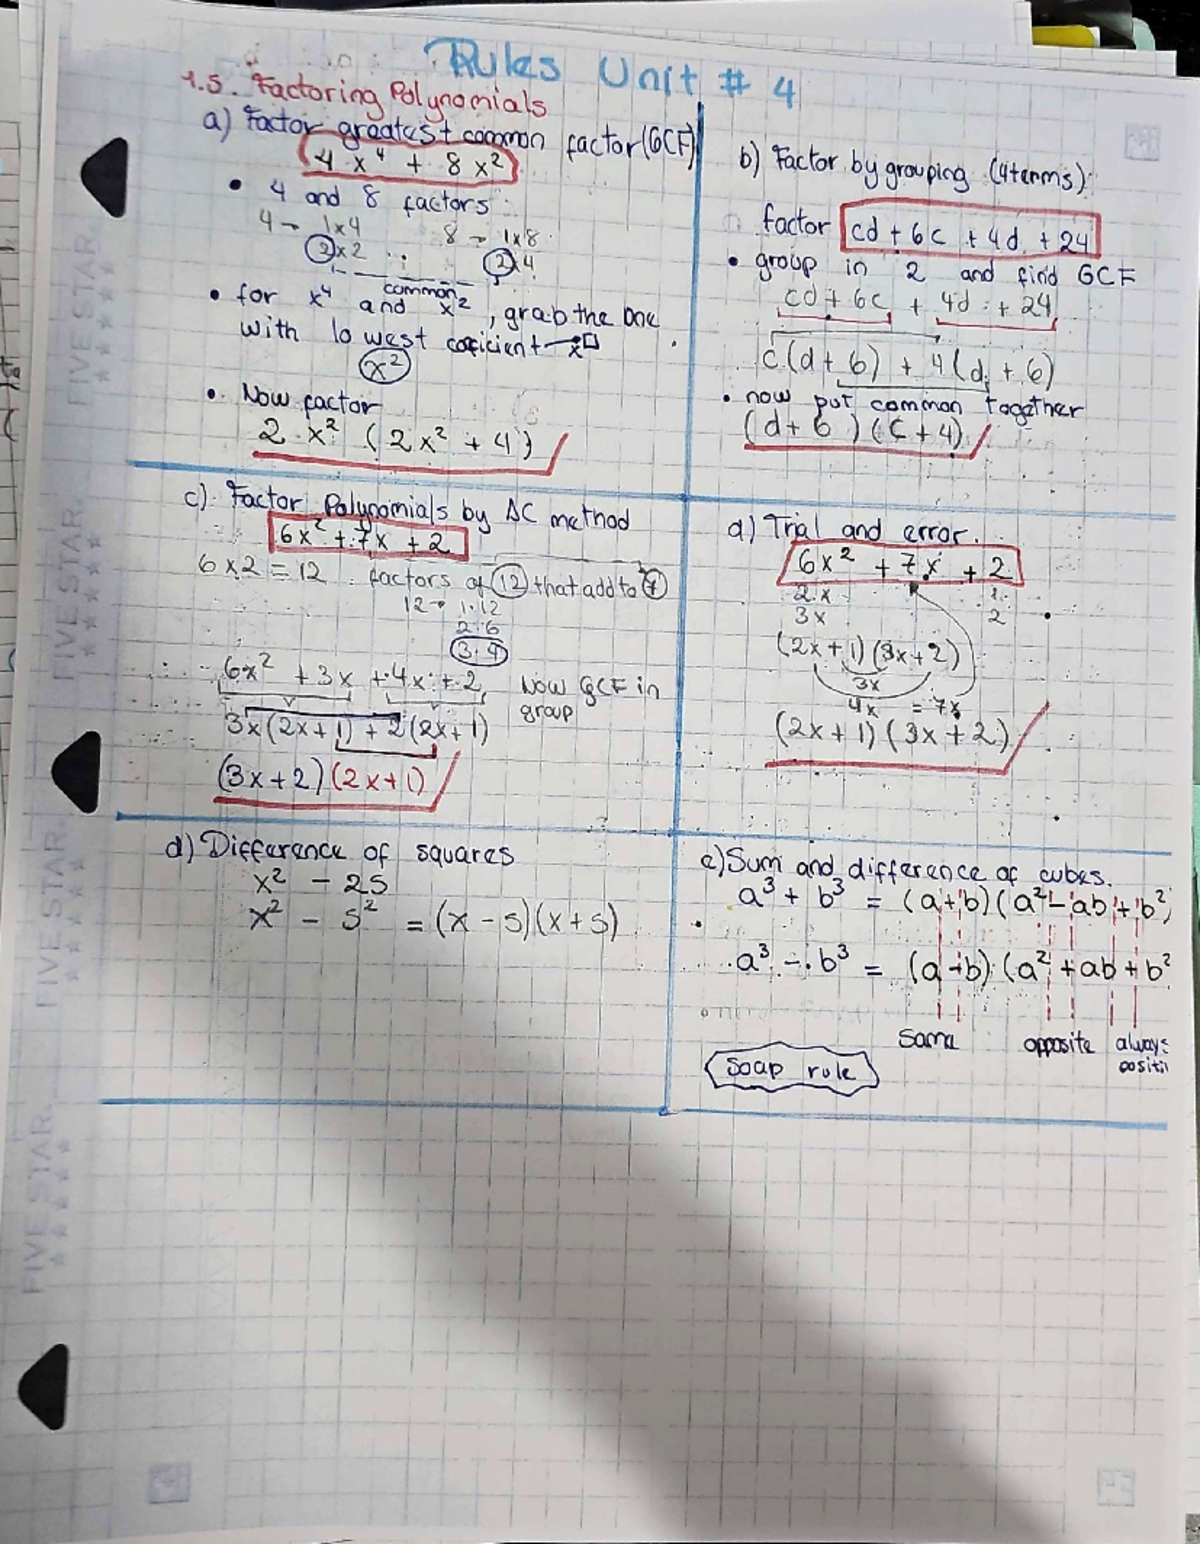 Rules Unit # 4
1.5. Factoring Polynomials
a) Factor greatest common factor (GCF)
4x⁴ + 8x²
• 4 and 8 factors:
4 → 1x4 8 → 1x8
2x2 2x4
common
• for x⁴ and x², grab the one
with lowest coeficient → x□
x²
• Now factor
2·x² (2x² + 4)
b) Factor by grouping (4 terms):
factor cd + 6c + 4d + 24
• group in 2 and find GCF
cd + 6c + 4d + 24
c(d + 6) + 4(d + 6)
• now put common together
(d + 6)(c + 4)
c) Factor Polynomials by AC method
6x² + 7x + 2
6x2 = 12 factors of 12 that add to 7
12 → 1·12
2·6
3·4
6x² + 3x + 4x + 2 Now GCF in
group
3x(2x+1) + 2(2x+1)
(3x+2)(2x+1)
d) Trial and error.
6x² + 7x + 2
2x 1
3x 2
(2x+1)(3x+2)
3x
4x = 7x
(2x+1)(3x+2)
d) Difference of squares
x² - 25
x² - 5² = (x-5)(x+5)
e) Sum and difference of cubes.
a³ + b³ = (a+b)(a² - ab + b²)
a³ - b³ = (a-b)(a² + ab + b²
same opposite always
positi
soap rule
FIVE STAR
FIVE STAR
FIVE STAR
FIVE STAR